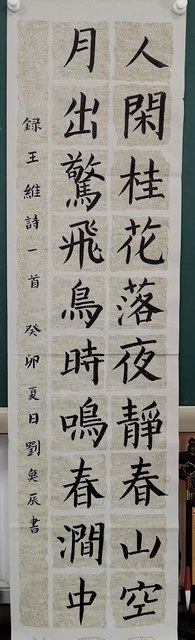 人閑桂花落夜靜春山空
月出驚飛鳥時鳴春澗中
録王維詩一首 癸卯夏日劉奐辰書